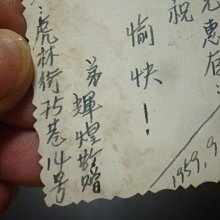 祝
愉快！
弟 輝煌敬贈
虎林街75巷14号
1959.9